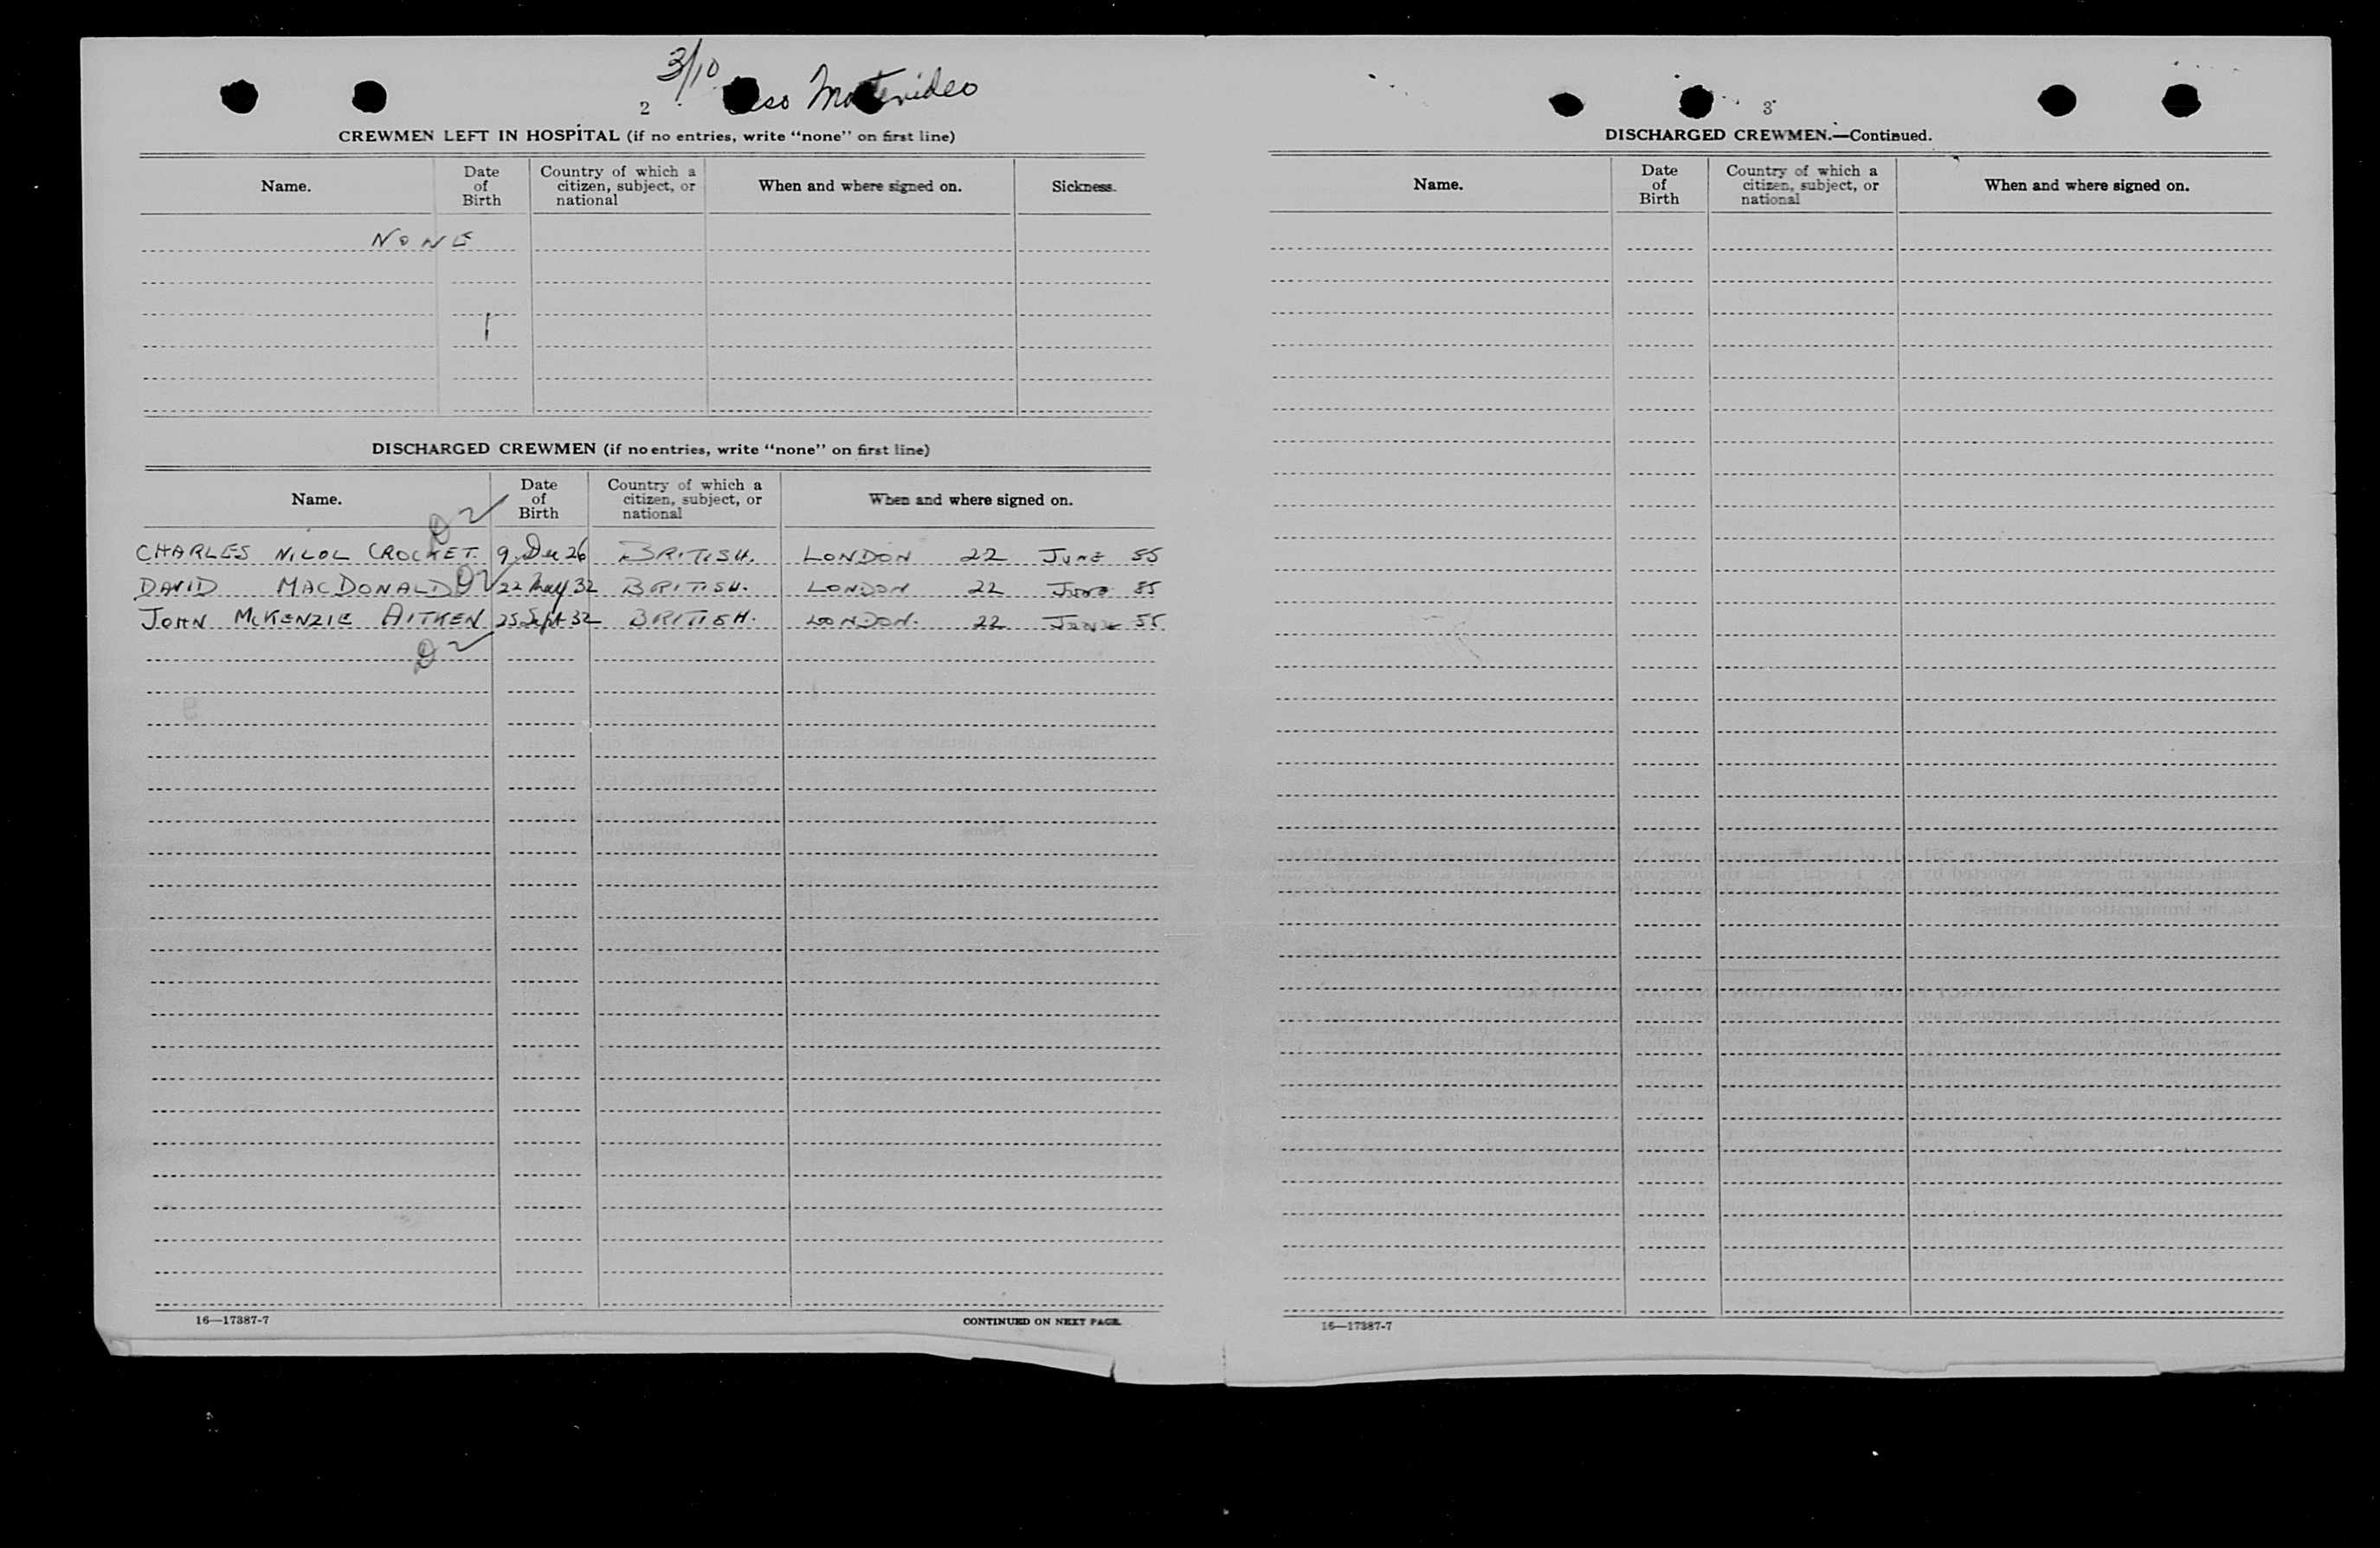 3/10
2
Esso Montevideo
CREWMEN LEFT IN HOSPITAL (if no entries, write "none" on first line)
Name. Date of Birth Country of which a citizen, subject, or national When and where signed on. Sickness.
NONE
DISCHARGED CREWMEN (if no entries, write "none" on first line)
Name. Date of Birth Country of which a citizen, subject, or national When and where signed on.
CHARLES NICOL CROCKET. 9 Dec 26 BRITISH. LONDON 22 JUNE 55
DAVID MACDONALD 22 May 32 BRITISH. LONDON 22 JUNE 55
JOHN McKENZIE AITKEN 25 Sept 32 BRITISH. LONDON. 22 JUNE 55.
16—17387-7
CONTINUED ON NEXT PAGE.
3
DISCHARGED CREWMEN.—Continued.
Name. Date of Birth Country of which a citizen, subject, or national When and where signed on.
16—17387-7